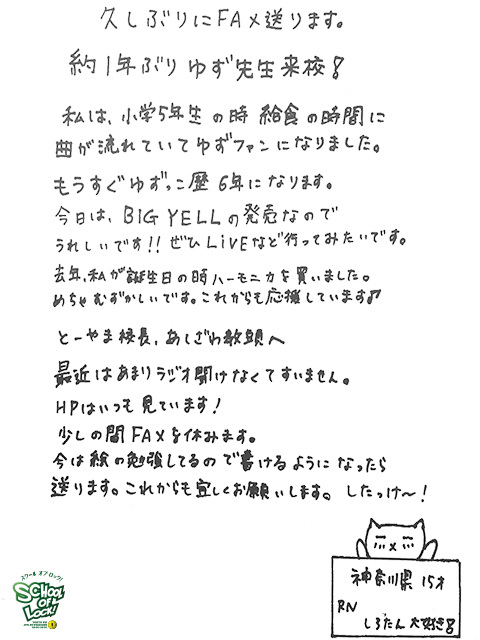 久しぶりにFAX送ります。
約1年ぶりゆず先生来校!
私は、小学5年生の時 給食の時間に
曲が流れていてゆずファンになりました。
もうすぐゆずっこ歴 6年になります。
今日は、BIG YELLの発売なので
うれしいです!! ぜひLiVEなど行ってみたいです。
去年、私が誕生日の時ハーモニカを買いました。
めちゃむずかしいです。これからも応援しています♪
とーやま校長、あしざわ教頭へ
最近はあまりラジオ聞けなくてすいません。
HPはいつも見ています!
少しの間FAXを休みます。
今は絵の勉強してるので書けるようになったら
送ります。これからも宜しくお願いします。 したっけ〜!
神奈川県 15才
RN
しろたん大好き
スクール オブ ロック!
SCHOOL
OF
LOCK!